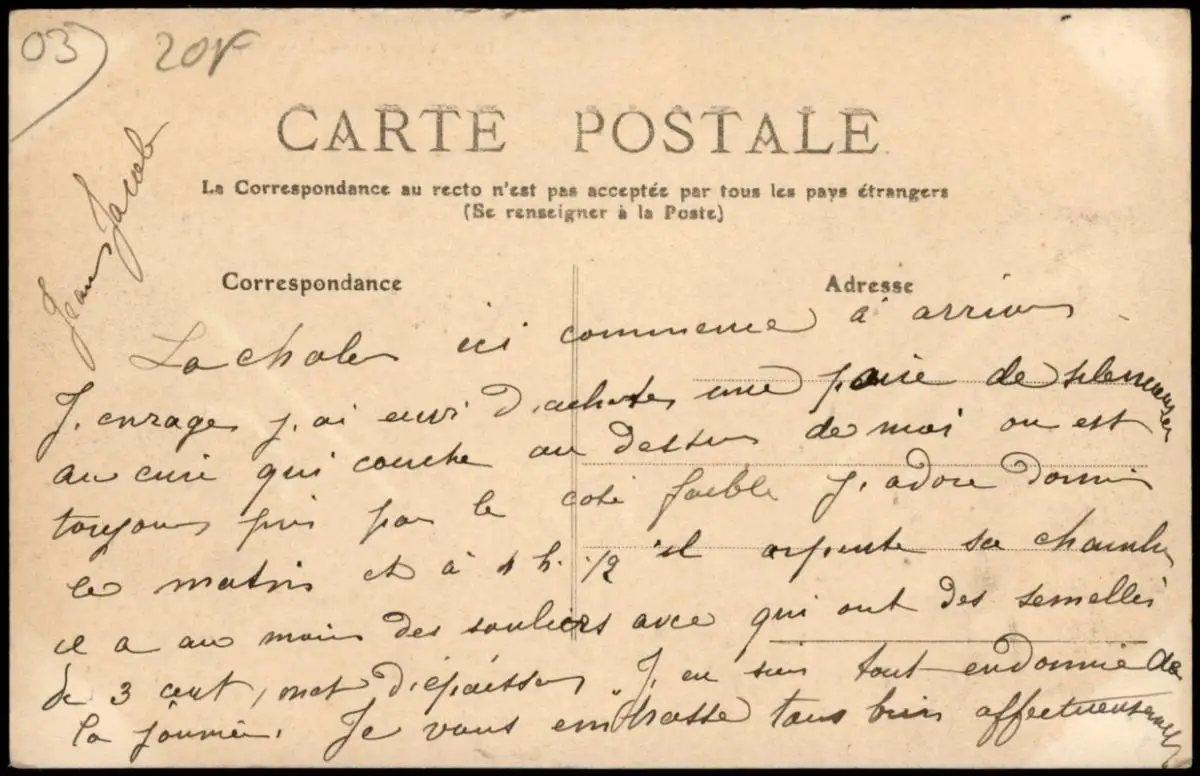 03
20F
CARTE POSTALE
La Correspondance au recto n'est pas acceptée par tous les pays étrangers
(Se renseigner à la Poste)
Correspondance
Adresse
Jean Jacob
La chaleur ici commence à arriver
J'enrage j'ai envi d'acheter une paire de
au curé qui couche au dessus de moi on est
toujours pris par le coté faible J'adore dormir
le matin et à 4 h. 1/2 il arpente sa chambre
il a au moins des souliers avec qui ont des semelles
de 3 cent, met d'épaisseur. J'en suis tout endormie de
la journée. Je vous embrasse tous bien affectueusement